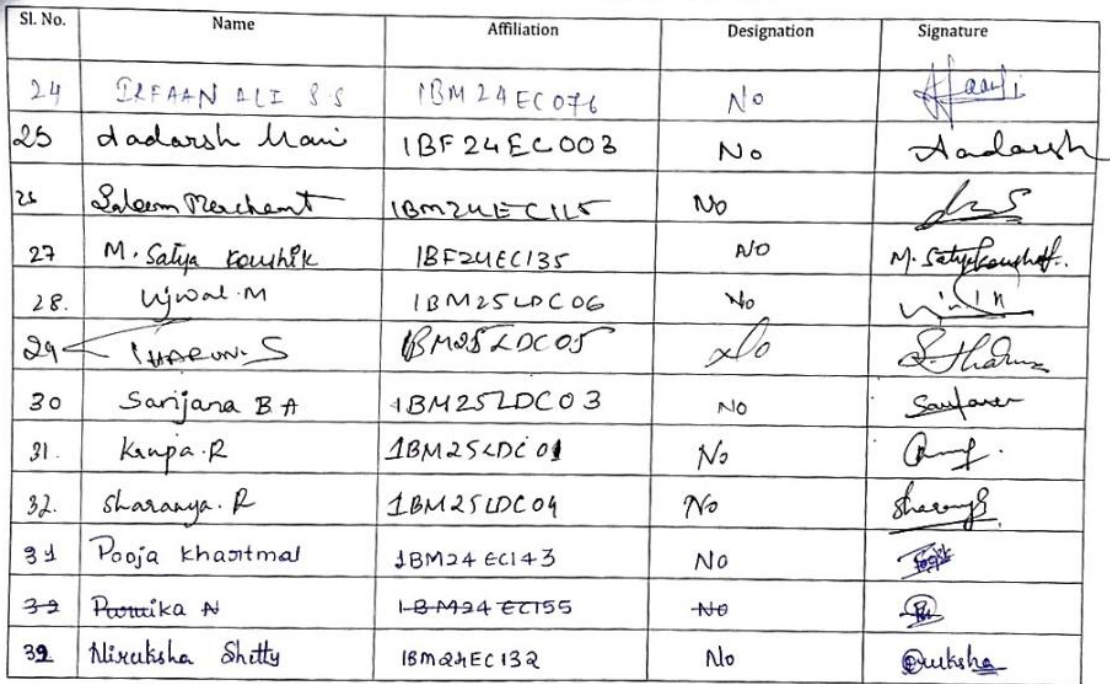 Sl. No. Name Affiliation Designation Signature
24 IRFAAN ALI S S 1BM24EC076 No
25 Aadarsh Mani 1BF24EC003 No Aadarsh
26 Saleem Merchant 1BM24EC115 No
27 M. Satya Koushik 1BF24EC135 NO M. Satyakoushik
28. Ujwal.M 1BM25LDC06 No
29 THARUN.S 1BM25LDC05 No S.Tharun
30 Sanjana B A 1BM25LDC03 No Sanjana
31. Krupa.R 1BM25LDC01 No
32. Sharanya.R 1BM25LDC04 No Sharanya
31 Pooja Khantmal 1BM24EC143 No
32 N 1BM24EC155 No
32 Niruksha Shetty 1BM24EC132 No